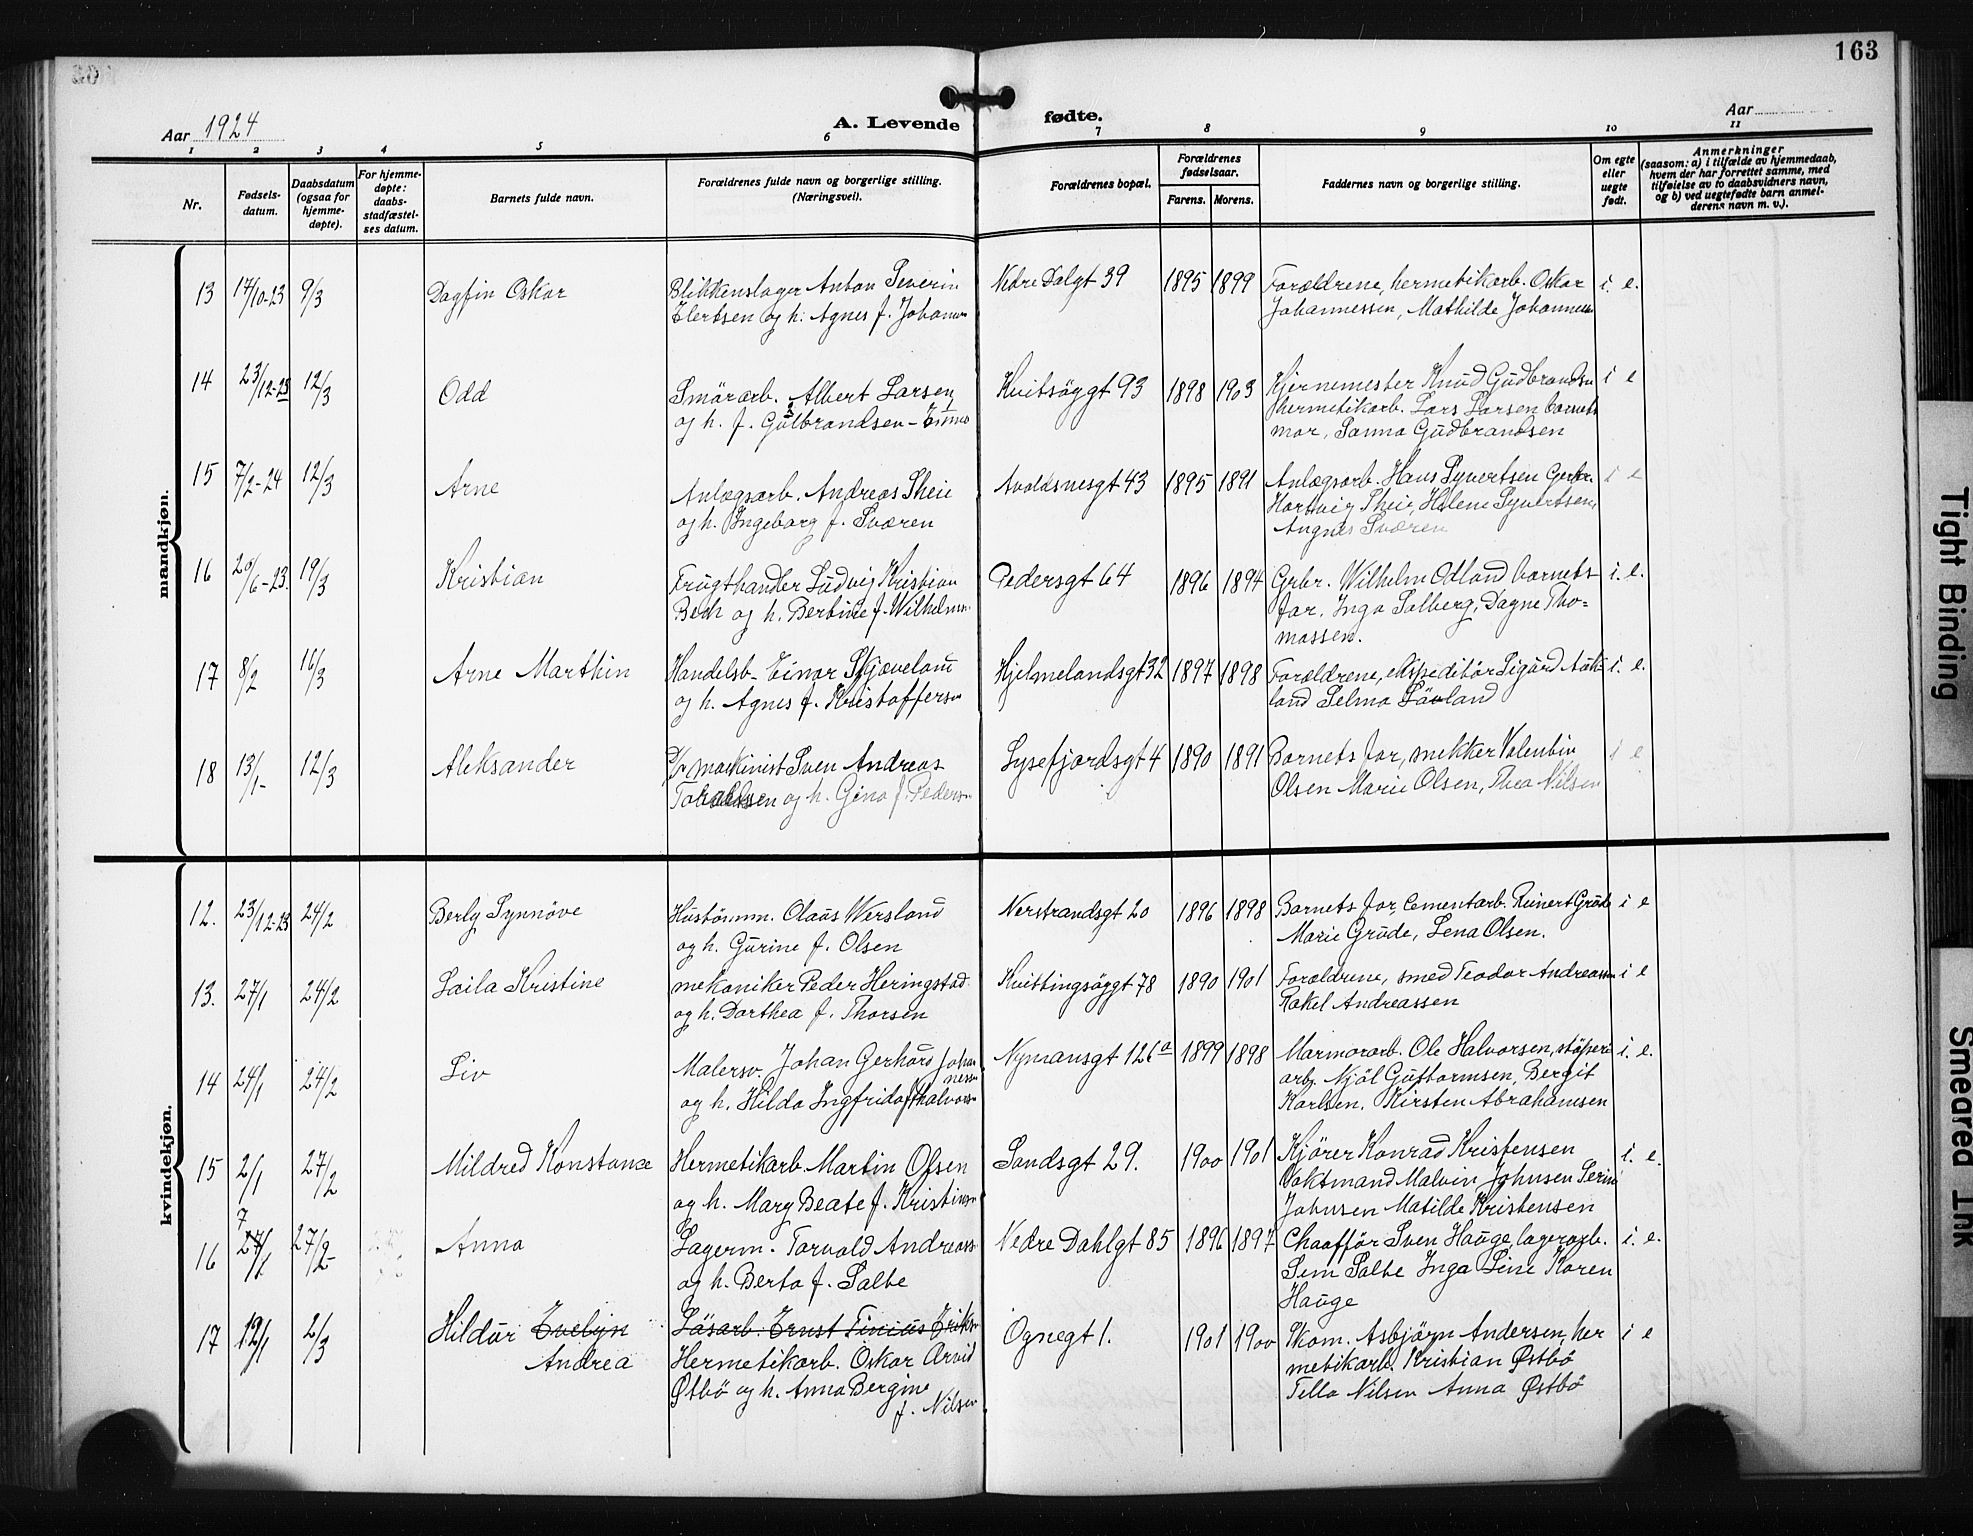 163
Aar 1924
A. Levende
fødte.
Aar
1 2 3 4 5 6 7 8 9 10 11
Nr.
Fødsels-
datum.
Daabsdatum
(ogsaa for
hjemme-
døpte).
For hjemme-
døpte:
daabs-
stadfæstel-
ses datum.
Barnets fulde navn.
Forældrenes fulde navn og borgerlige stilling.
(Næringsvei).
Forældrenes bopæl.
Forældrenes
fødselsaar.
Farens. Morens.
Faddernes navn og borgerlige stilling.
Om egte
eller
uegte
født.
Anmerkninger
(saasom: a) i tilfælde av hjemmedaab,
hvem der har forrettet samme, med
tilføielse av to daabsvidners navn,
og b) ved uegtefødte barn anmel-
derens navn m. v.).
mandkjøn.
13 14/10-23 9/3 Dagfin Oskar Blikkenslager Anton Severin Nedre Dalgt 39 1895 1899 Forældrene, hermetikarb. Oskar i. e.
Elertsen og h. Agnes f. Johannes Johannessen, Mathilde Johannessen
14 23/12-23 12/3 Odd Smörarb. Albert Larsen Kvitsöygt 93 1898 1903 Kjernemester Knud Gudbrandsen i e
og h. f. Gulbrandsen - Emma hermetikarb. Lars Larsen barnets
mor, Sanna Gudbrandsen
15 7/2-24 12/3 Arne Anlægsarb. Andreas Skeie Avaldsnesgt 43 1895 1891 Anlægsarb. Hans Syvertsen Gerhr. i e
og h. Ingeborg f. Sværen Hartvig Skeie, Helene Syvertsen,
Angnes Sværen
16 20/6-23. 19/3 Kristian Frugthandler Ludvig Kristian Pedersgt 64 1896 1894 Grbr. Wilhelm Odland barnets i. e.
Bern og h. Bertine f. Wilhelmsen far. Inga Solberg, Dagne Tho=
massen.
17 8/2 16/3 Arne Marthin Handelsb- Einar Skjæveland Hjelmelandsgt 32 1897 1898 Forældrene, ekspeditör Sigurd i. e.
og h. Agnes f. Kristoffersen land Selma Lövland
18 13/1- 12/3 Aleksander D/r maskinist Sven Andreas Lysefjordsgt 4 1890 1891 Barnets far, mekker Valentin i e
og h. Gina f. Pedersen Olsen Marie Olsen, Thea Nilsen
kvindekjøn.
12. 23/12-23 24/2 Berly Synnöve Hustömm. Olaus Wersland Nerstrandsgt 20 1896 1898 Barnets far, Cementarb. Reinert Grude i e
og h. Gurine f. Olsen Marie Grude, Lena Olsen.
13. 27/1 24/2 Laila Kristine mekaniker Peder Heringstad Kvittingsöygt 78 1890 1901 Forældrene, smed Teodor Andreassen i e
og h. Dorthea f. Thorsen Rakel Andreassen
14 24/1 24/2 Liv Malersv. Johan Gerhard Johan Nymansgt 126a 1899 1898 Marmorarb. Ole Halvorsen, stöperi i. e.
nessen
og h. Hilda Ingfrida f. Halvorsen arb. Njöl Guttormsen, Bergit
Karlsen. Kirsten Abrahamsen
15 2/1 27/2 Mildred Konstance Hermetikarb. Martin Olsen Sandsgt 29. 1900 1901 Kjörer Konrad Kristensen i. e.
og h. Mary Beate f. Kristensen Vaktmand Malvin Johnsen Serine
Johnsen Matilde Kristensen
16 7 27/1 27/2- Anna Lagerm. Torvald Andreass. Nedre Dahlgt 85 1896 1897 Chafför Sven Hauge, lagerarb. i. e.
og h. Berta f. Salte Sem Salte Inga Sine Karen
Hauge
17 12/1 2/3 Hildur Evelyn Läsarb. Ernst Tinius Eriksen Ognegt 1. 1901 1900 Skom. Asbjörn Andersen, her i e
Andrea Hermetikarb. Oskar Arvid metikarb. Kristian Østbö
Østbö og h. Anna Bergine Tella Nilsen Anna Østbö
f. Nilsen
Tight Binding
Smeared Ink